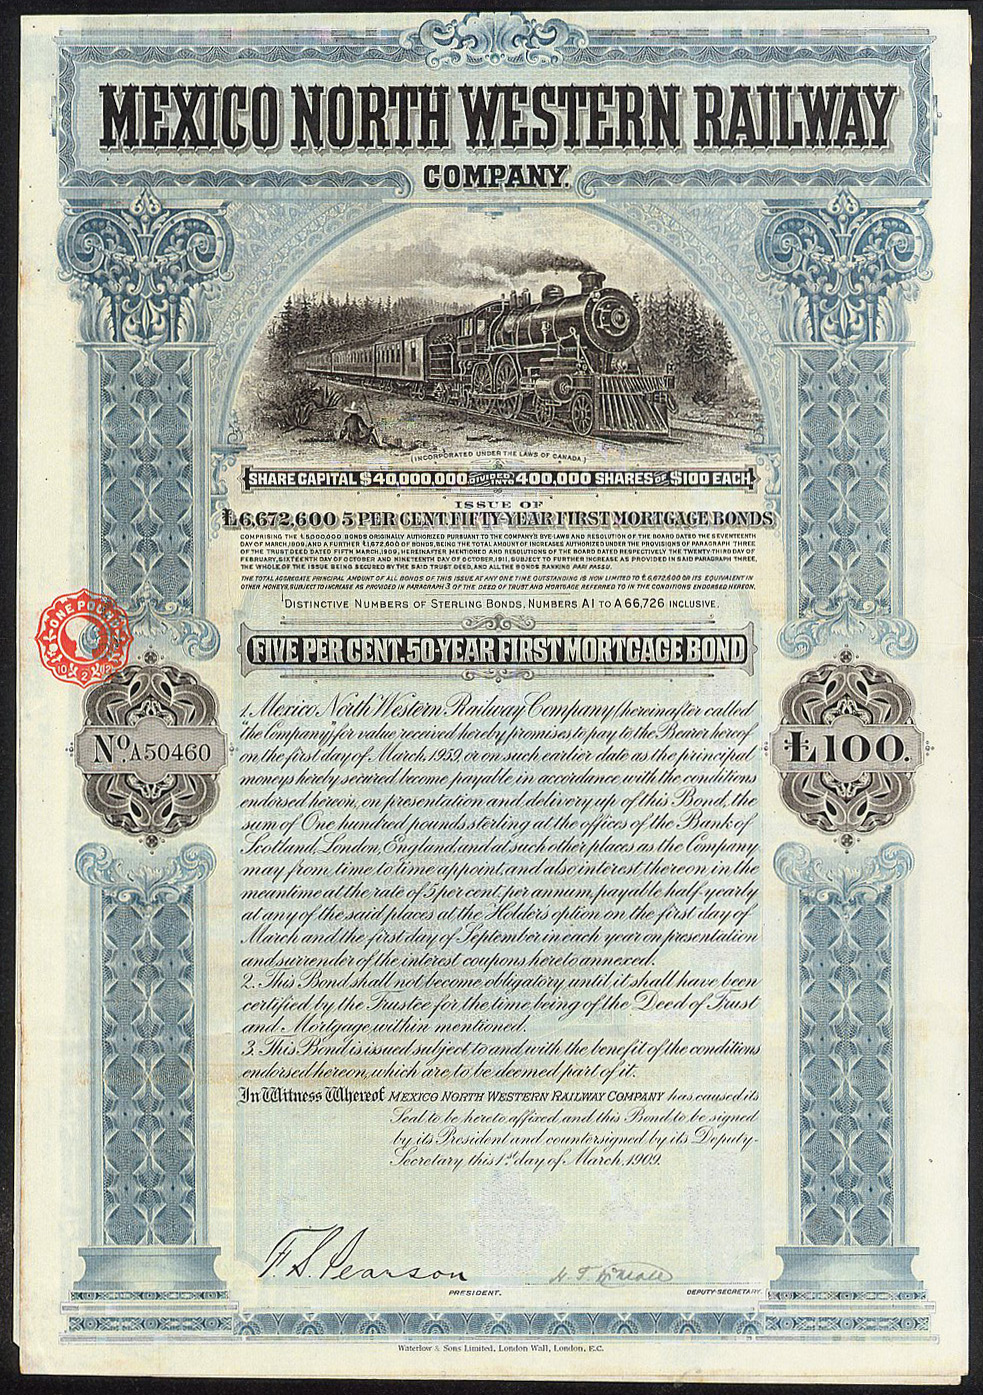 MEXICO NORTH WESTERN RAILWAY
COMPANY.
(INCORPORATED UNDER THE LAWS OF CANADA.)
SHARE CAPITAL $40,000,000 DIVIDED INTO 400,000 SHARES OF $100 EACH.
ISSUE OF
£6,672,600 5 PER CENT. FIFTY-YEAR FIRST MORTGAGE BONDS
COMPRISING THE £5,000,000 BONDS ORIGINALLY AUTHORIZED PURSUANT TO THE COMPANY'S BYE-LAWS AND RESOLUTION OF THE BOARD DATED THE SEVENTEENTH
DAY OF MARCH, 1909, AND A FURTHER £1,672,600 OF BONDS, BEING THE TOTAL AMOUNT OF INCREASES AUTHORIZED UNDER THE PROVISIONS OF PARAGRAPH THREE
OF THE TRUST DEED DATED FIFTH MARCH, 1909, HEREINAFTER MENTIONED AND RESOLUTIONS OF THE BOARD DATED RESPECTIVELY THE TWENTY-THIRD DAY OF
FEBRUARY, SIXTEENTH DAY OF OCTOBER AND NINETEENTH DAY OF OCTOBER, 1911, SUBJECT TO FURTHER INCREASE AS PROVIDED IN SAID PARAGRAPH THREE,
THE WHOLE OF THE ISSUE BEING SECURED BY THE SAID TRUST DEED, AND ALL THE BONDS RANKING PARI PASSU.
THE TOTAL AGGREGATE PRINCIPAL AMOUNT OF ALL BONDS OF THIS ISSUE AT ANY ONE TIME OUTSTANDING IS NOW LIMITED TO £6,672,600 OR ITS EQUIVALENT IN
OTHER MONEYS, SUBJECT TO INCREASE AS PROVIDED IN PARAGRAPH 3 OF THE DEED OF TRUST AND MORTGAGE REFERRED TO IN THE CONDITIONS ENDORSED HEREON.
DISTINCTIVE NUMBERS OF STERLING BONDS, NUMBERS A1 TO A66,726 INCLUSIVE.
ONE POUND
10 2 12
FIVE PER CENT. 50-YEAR FIRST MORTGAGE BOND
No. A50460
£100.
1. Mexico North Western Railway Company (hereinafter called
"the Company") for value received hereby promises to pay to the Bearer hereof
on the first day of March, 1959, or on such earlier date as the principal
moneys hereby secured become payable in accordance with the conditions
endorsed hereon, on presentation and delivery up of this Bond, the
sum of One hundred pounds sterling at the offices of the Bank of
Scotland, London, England, and at such other places as the Company
may from time to time appoint, and also interest thereon in the
meantime at the rate of 5 per cent. per annum, payable half-yearly
at any of the said places at the Holder's option on the first day of
March and the first day of September in each year on presentation
and surrender of the interest coupons hereto annexed.
2. This Bond shall not become obligatory until it shall have been
certified by the Trustee for the time being of the Deed of Trust
and Mortgage within mentioned.
3. This Bond is issued subject to and with the benefit of the conditions
endorsed hereon, which are to be deemed part of it.
In Witness Whereof MEXICO NORTH WESTERN RAILWAY COMPANY has caused its
Seal to be hereto affixed, and this Bond to be signed
by its President and countersigned by its Deputy-
Secretary this 1st day of March, 1909.
F. S. Pearson
PRESIDENT.
DEPUTY-SECRETARY.
Waterlow & Sons Limited, London Wall, London, E.C.